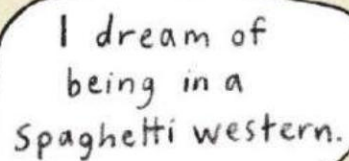 I dream of
being in a
Spaghetti western.